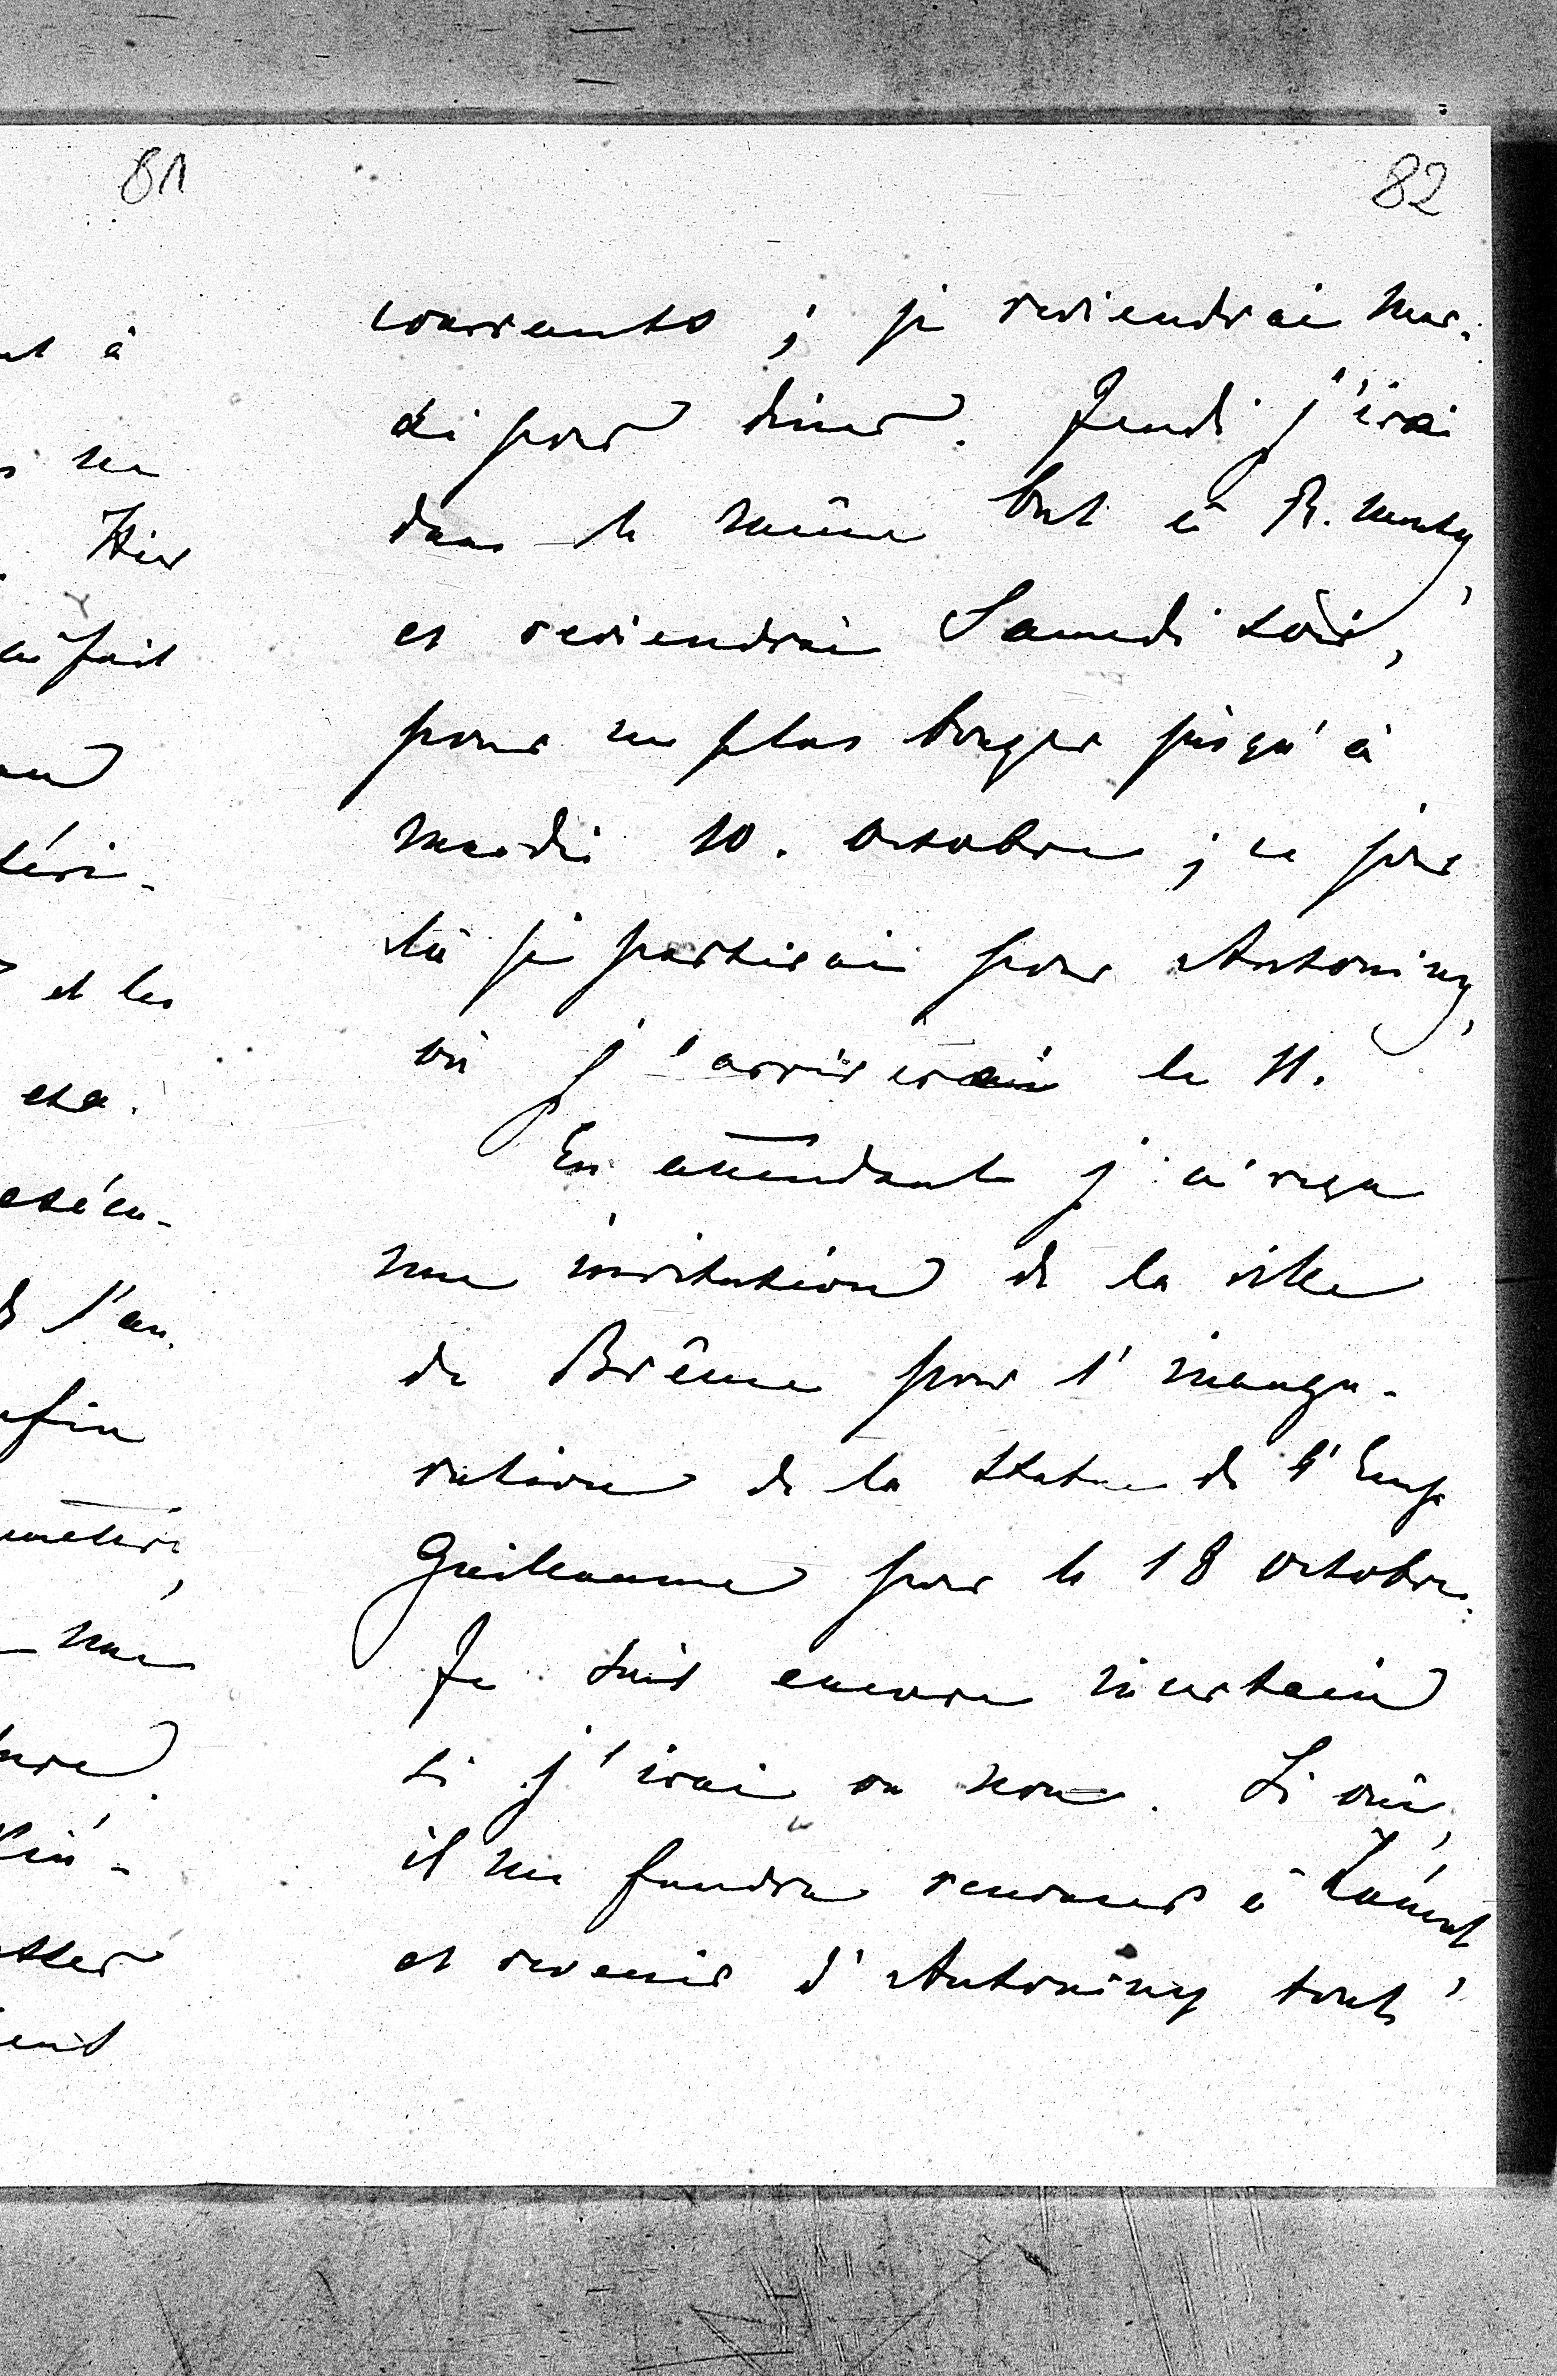 81
82
courants ; je reviendrai mar-
di pour diner. Jeudi j'irai
dans le même but à R.
et reviendrai Samedi soir,
pour ne plus bouger jusqu'à
mardi 10. Octobre ; ce jour
là je partirai pour Antoniny,
où j'arriverai le 11.
En attendant j'ai reçu
une invitation de la ville
de Brême pour l'inaugu-
ration de la statue de l'Emp
Guillaume pour le 18 Octobre.
Je suis encore incertain
si j'irai ou non. Si oui,
il me faudra renoncer à Łańcut
et revenir d'Antoniny tout
ut à
Hier
fait
téri-
et les
exa.
exécu-
de l'an-
une
ent